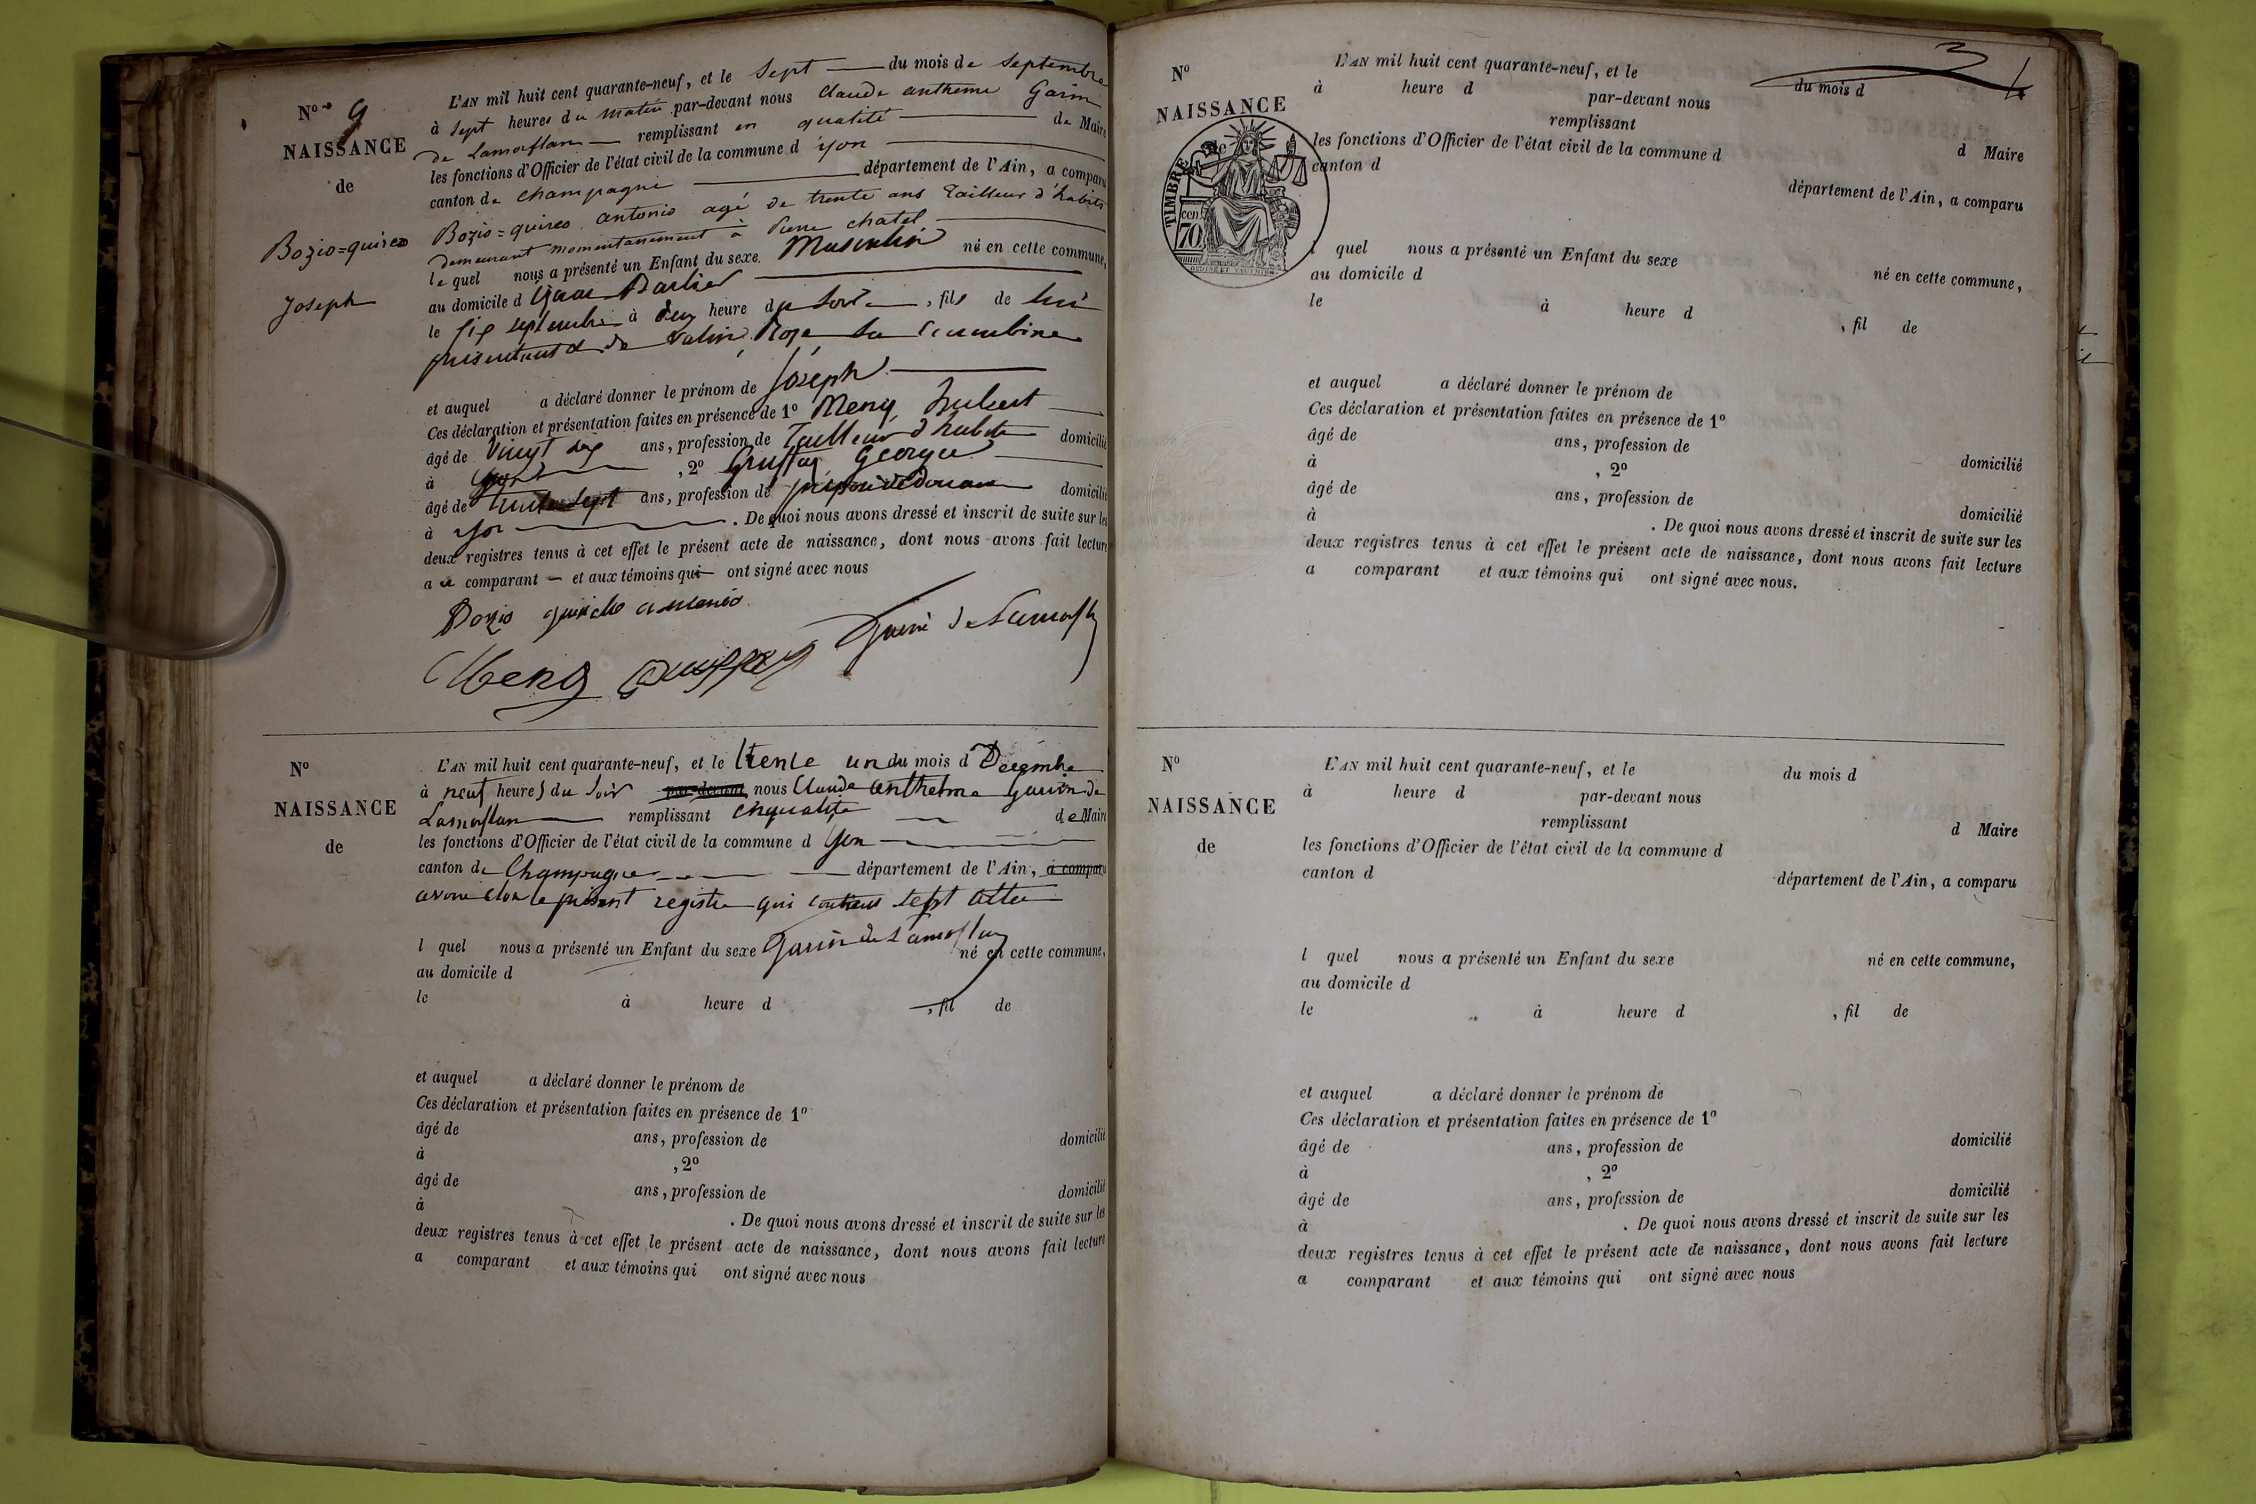 N° 9
NAISSANCE
de
Bozio=quireo
Joseph
L'AN mil huit cent quarante-neuf, et le Sept du mois de Septembre
à Sept heures du matin par-devant nous Claude antheme Garin
de Lamorflan remplissant en qualité de Maire
les fonctions d'Officier de l'état civil de la commune d yon
canton de Champagne département de l'Ain, a comparu
Bozio=quireo antonio agé de trente ans Tailleur d'habits
demeurant momentanement à Pierre chatel
le quel nous a présenté un Enfant du sexe Masculin né en cette commune,
au domicile d
le six septembre à deux heure du Soir, fils de lui
présentant & de Rose
et auquel a déclaré donner le prénom de Joseph
Ces déclaration et présentation faites en présence de 1° Meng hubert
âgé de Vingt six ans, profession de Tailleur d'habits domicilié
à yon, 2° Gruffay George
âgé de trente sept ans, profession de préposé de Douane domicilié
à yon. De quoi nous avons dressé et inscrit de suite sur les
deux registres tenus à cet effet le présent acte de naissance, dont nous avons fait lecture
a u comparant et aux témoins qui ont signé avec nous
Bozio antonio
Garin de Lamorflan
Meng
N°
NAISSANCE
de
L'AN mil huit cent quarante-neuf, et le trente un du mois d Décembre
à neuf heures du Soir par-devant nous Claude anthelme garin de
Lamorflan remplissant en qualité de Maire
les fonctions d'Officier de l'état civil de la commune d yon
canton de Champagne département de l'Ain, a comparu
avons clos le présent registre qui contient sept actes
l quel nous a présenté un Enfant du sexe Garin de Lamorflan né en cette commune,
au domicile d
le à heure d , fil de
et auquel a déclaré donner le prénom de
Ces déclaration et présentation faites en présence de 1°
âgé de ans, profession de domicilié
à , 2°
âgé de ans, profession de domicilié
à . De quoi nous avons dressé et inscrit de suite sur les
deux registres tenus à cet effet le présent acte de naissance, dont nous avons fait lecture
a comparant et aux témoins qui ont signé avec nous
N°
NAISSANCE
TIMBRE
70 cen.
L'AN mil huit cent quarante-neuf, et le du mois d
à heure d par-devant nous
remplissant d Maire
les fonctions d'Officier de l'état civil de la commune d
canton d département de l'Ain, a comparu
l quel nous a présenté un Enfant du sexe né en cette commune,
au domicile d
le à heure d , fil de
et auquel a déclaré donner le prénom de
Ces déclaration et présentation faites en présence de 1°
âgé de ans, profession de domicilié
à , 2°
âgé de ans, profession de domicilié
à . De quoi nous avons dressé et inscrit de suite sur les
deux registres tenus à cet effet le présent acte de naissance, dont nous avons fait lecture
a comparant et aux témoins qui ont signé avec nous.
N°
NAISSANCE
de
L'AN mil huit cent quarante-neuf, et le du mois d
à heure d par-devant nous
remplissant d Maire
les fonctions d'Officier de l'état civil de la commune d
canton d département de l'Ain, a comparu
l quel nous a présenté un Enfant du sexe né en cette commune,
au domicile d
le à heure d , fil de
et auquel a déclaré donner le prénom de
Ces déclaration et présentation faites en présence de 1°
âgé de ans, profession de domicilié
à , 2°
âgé de ans, profession de domicilié
à . De quoi nous avons dressé et inscrit de suite sur les
deux registres tenus à cet effet le présent acte de naissance, dont nous avons fait lecture
a comparant et aux témoins qui ont signé avec nous